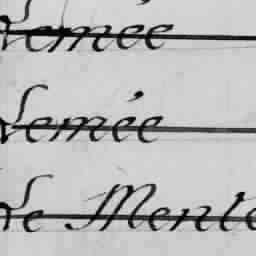 Lemée
Lemée
Le Mente